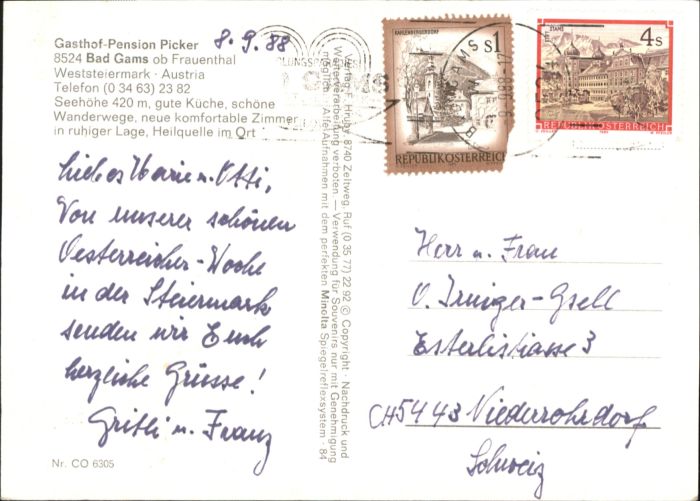 Gasthof-Pension Picker
8524 Bad Gams ob Frauenthal
Weststeiermark · Austria
Telefon (0 34 63) 23 82
Seehöhe 420 m, gute Küche, schöne
Wanderwege, neue komfortable Zimmer
in ruhiger Lage, Heilquelle im Ort
8.9.88
Liebes Marie u. Otti,
Von unserer schönen
Oesterreicher-Woche
in der Steiermark
senden wir Euch
herzliche Grüsse!
Gritli u. Franz
Nr. CO 6305
Verlag F. Hruby, 8740 Zeltweg, Ruf (0 35 77) 22 92 © Copyright - Nachdruck und
Weiterverarbeitung verboten — Verwendung für Souvenirs nur mit Genehmigung
möglich - Alle Aufnahmen mit dem perfekten Minolta Spiegelreflexsystem · 84
KAHLENBERGERDORF
S1
REPUBLIK ÖSTERREICH
STIFT STAMS
4s
REPUBLIK ÖSTERREICH
Herr u. Frau
O. Irniger-Gsell
Esterlistrasse 3
CH 5443 Niederrohrdorf
Schweiz